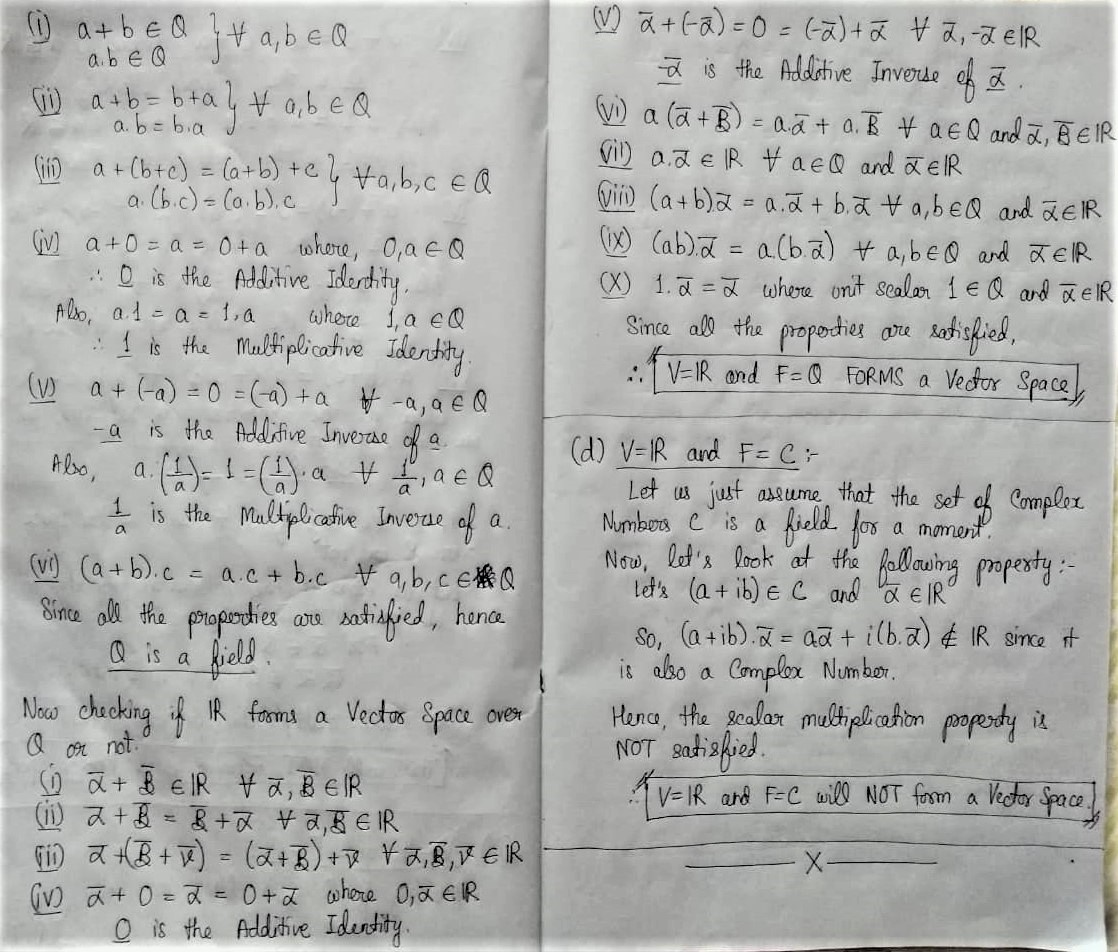 (i) a + b ∈ Q } ∀ a,b ∈ Q
a.b ∈ Q
(ii) a + b = b + a } ∀ a,b ∈ Q
a.b = b.a
(iii) a + (b+c) = (a+b) + c } ∀ a,b,c ∈ Q
a.(b.c) = (a.b).c
(iv) a + 0 = a = 0 + a where, 0,a ∈ Q
∴ 0 is the Additive Identity.
Also, a.1 = a = 1.a where 1,a ∈ Q
∴ 1 is the Multiplicative Identity.
(v) a + (-a) = 0 = (-a) + a ∀ -a, a ∈ Q
-a is the Additive Inverse of a.
Also, a.(1/a) = 1 = (1/a).a ∀ 1/a, a ∈ Q
1/a is the Multiplicative Inverse of a.
(vi) (a+b).c = a.c + b.c ∀ a,b,c ∈ Q
Since all the properties are satisfied, hence
Q is a field.
Now checking if ℝ forms a Vector Space over
Q or not.
(i) ᾱ + B̄ ∈ ℝ ∀ ᾱ, B̄ ∈ ℝ
(ii) ᾱ + B̄ = B̄ + ᾱ ∀ ᾱ, B̄ ∈ ℝ
(iii) ᾱ + (B̄ + v̄) = (ᾱ + B̄) + v̄ ∀ ᾱ, B̄, v̄ ∈ ℝ
(iv) ᾱ + 0 = ᾱ = 0 + ᾱ where 0, ᾱ ∈ ℝ
0 is the Additive Identity.
(v) ᾱ + (-ᾱ) = 0 = (-ᾱ) + ᾱ ∀ ᾱ, -ᾱ ∈ ℝ
-ᾱ is the Additive Inverse of ᾱ.
(vi) a(ᾱ + B̄) = a.ᾱ + a.B̄ ∀ a ∈ Q and ᾱ, B̄ ∈ ℝ
(vii) a.ᾱ ∈ ℝ ∀ a ∈ Q and ᾱ ∈ ℝ
(viii) (a+b)ᾱ = a.ᾱ + b.ᾱ ∀ a,b ∈ Q and ᾱ ∈ ℝ
(ix) (ab).ᾱ = a.(b.ᾱ) ∀ a,b ∈ Q and ᾱ ∈ ℝ
(x) 1.ᾱ = ᾱ where unit scalar 1 ∈ Q and ᾱ ∈ ℝ
Since all the properties are satisfied,
∴ V=ℝ and F=Q FORMS a Vector Space
(d) V=ℝ and F=C :-
Let us just assume that the set of Complex
Numbers C is a field for a moment.
Now, let's look at the following property :-
let's (a+ib) ∈ C and ᾱ ∈ ℝ
So, (a+ib).ᾱ = aᾱ + i(b.ᾱ) ∉ ℝ since it
is also a Complex Number.
Hence, the scalar multiplication property is
NOT satisfied.
∴ V=ℝ and F=C will NOT form a Vector Space.
X